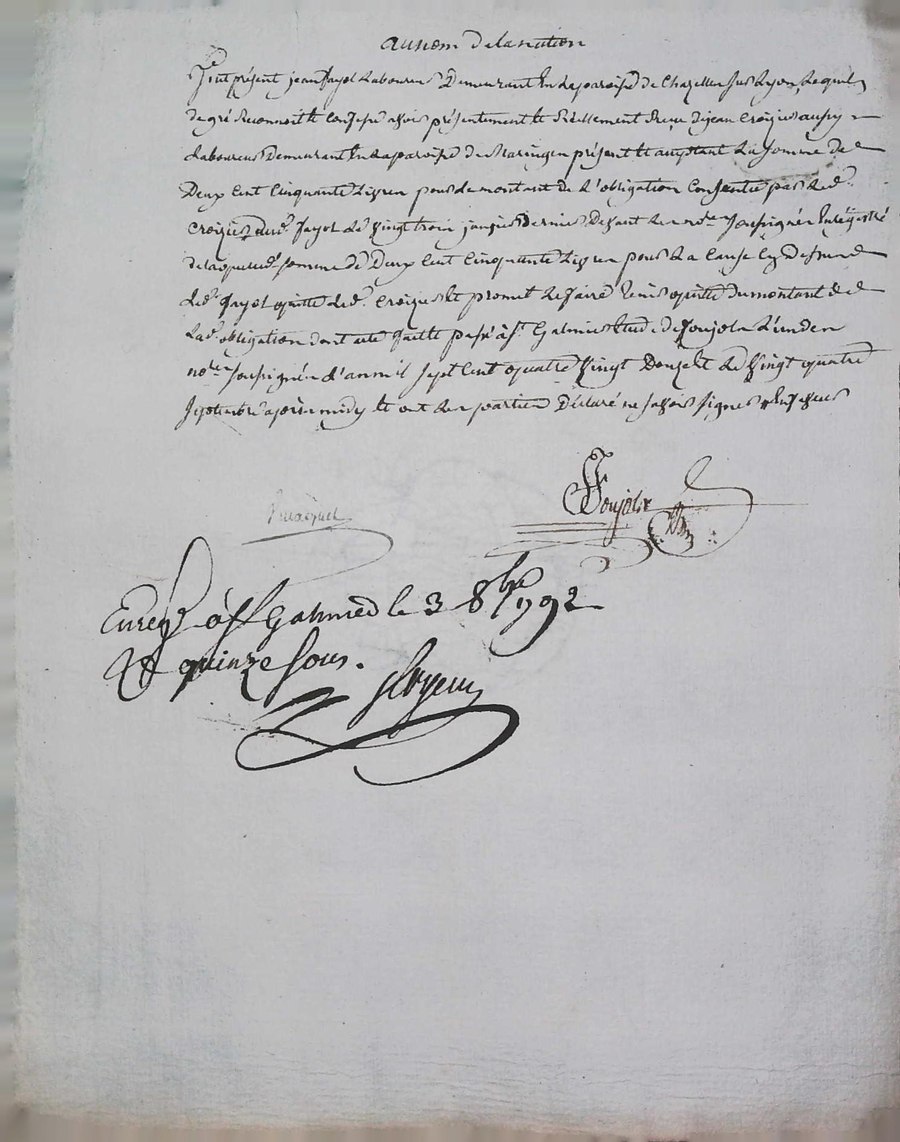 au nom de la nation
Fut présent jean fayol Laboureur Demeurant En la paroisse de Chazelles sur Lyon, Lequel
de gré Reconnoit et Confesse avoir présentement et Réellement Reçu de jean Croizier aussy
Laboureur Demeurant En la paroisse de Maringes présent et acceptant La somme de
Deux Cent Cinquante Livres pour le montant de L'obligation Consentie par Led.
Croizier aud. fayol Le Vingt trois janvier Dernier Devant Les no.res soussignés Enregistré
de laquelle somme de Deux Cent Cinquante Livres pour La Cause Cy Dessus
Led. fayol quitte Led. Croizier et promet Le faire tenir quitte du montant de
Lad. obligation dont acte fait et passé à S.t Galmier Etude de Soujolx L'un des
no.res soussignés L'an mil sept Cent quatre Vingt Douze et Le Vingt quatre
septembre après midy et ont Les parties Déclaré ne savoir signer
Soujolx
Enreg. à S.t Galmier le 3 8bre 1792
quinze sous.